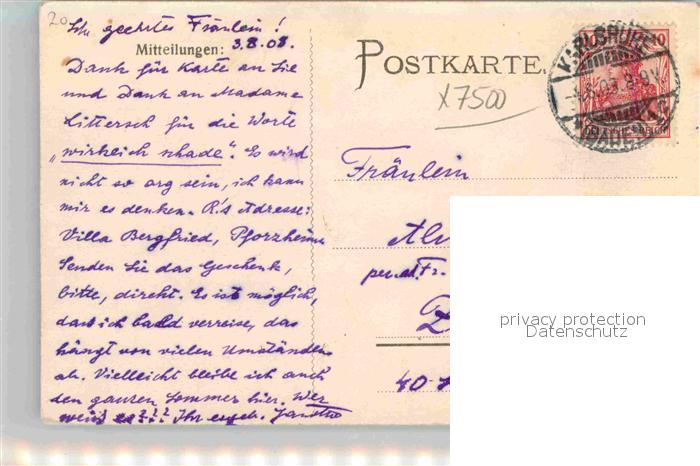 20
Sehr geehrtes Fräulein!
Mitteilungen: 3.8.08.
Dank für Karte an Sie
und Dank an Madame
Littersch für die Worte
„wirklich schade". Es wird
nicht so arg sein, ich kann
mir es denken. R.'s Adresse:
Villa Bergfried, Pforzheim
Senden Sie das Geschenk,
bitte, direkt. Es ist möglich,
dass ich bald verreise, das
hängt von vielen Umständen
ab. Vielleicht bleibe ich auch
den ganzen Sommer hier. Wer
weiß es??? Ihr ergeb.
POSTKARTE.
x7500
KARLSRUHE
(BADEN)
10
Fräulein
privacy protection
Datenschutz